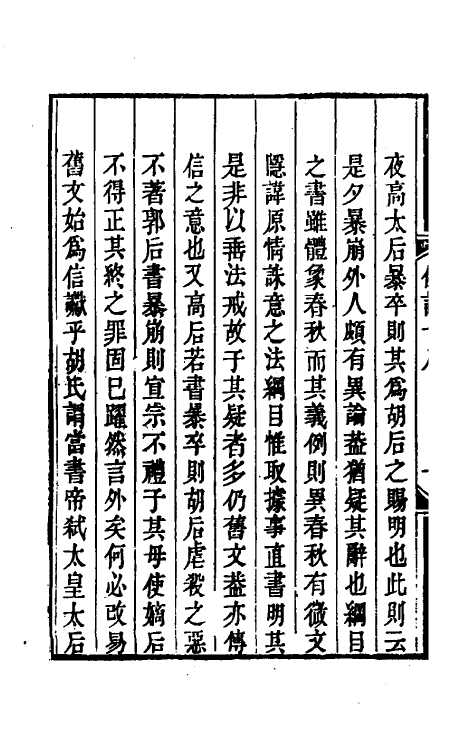 夜高太后暴卒則其爲胡后之賜明也此則云
是夕暴崩外人頗有異論葢猶疑其辭也綱目
之書雖體象春秋而其義例則異春秋有微文
隱諱原情誅意之法綱目惟取據事直書明其
是非以垂法戒故于其疑者多仍舊文葢亦傳
信之意也又高后若書暴卒則胡后虐殺之惡
不著郭后書暴崩則宣宗不禮于其母使嫡后
不得正其終之罪固已躍然言外矣何必改易
舊文始爲信讞乎胡氏謂當書帝弒太皇太后